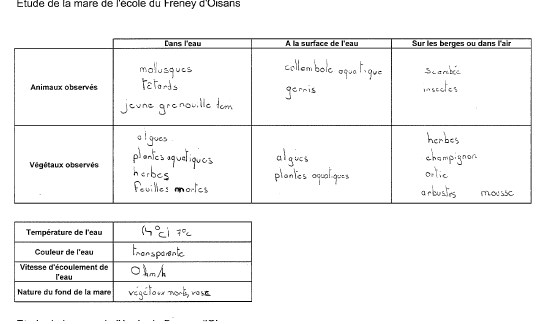 Etude de la mare de l'école du Freney d'Oisans
Dans l'eau
A la surface de l'eau
Sur les berges ou dans l'air
Animaux observés
mollusques
têtards
jeune grenouille
collembole aquatique
gerris
insectes
Végétaux observés
algues
plantes aquatiques
herbes
feuilles mortes
algues
plantes aquatiques
herbes
champignon
ortie
arbustes mousse
Température de l'eau
7°C
Couleur de l'eau
transparente
Vitesse d'écoulement de l'eau
0 km/h
Nature du fond de la mare
végétaux morts, vase